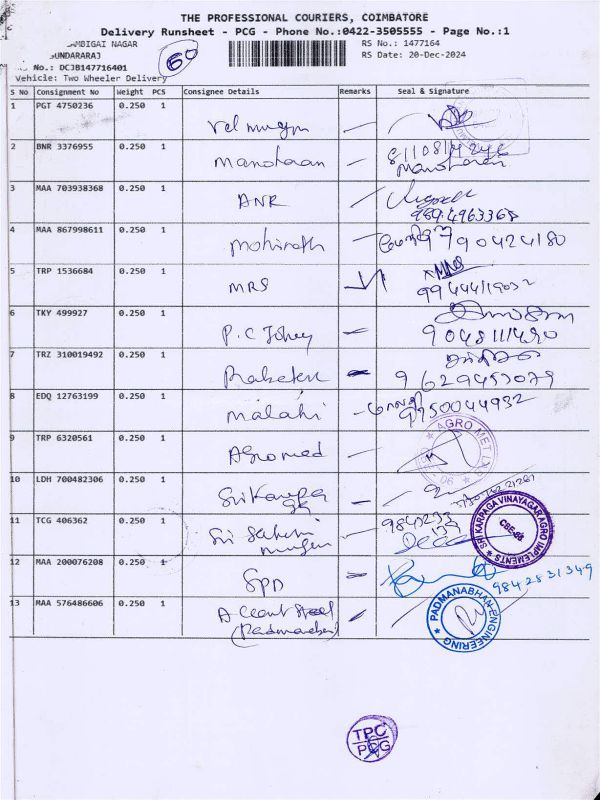 THE PROFESSIONAL COURIERS, COIMBATORE
Delivery Runsheet - PCG - Phone No.:0422-3505555 - Page No.:1
AMBIGAI NAGAR
RS No.: 1477164
UNDARARAJ
60
RS Date: 20-Dec-2024
No.: DCJB147716401
Vehicle: Two Wheeler Delivery
S No Consignment No Weight PCS Consignee Details Remarks Seal & Signature
1 PGT 4750236 0.250 1
Vel murugan
2 BNR 3376955 0.250 1
Manoharan
Manoharan
3 MAA 703938368 0.250 1
ANR
9894963368
4 MAA 867998611 0.250 1
mohinath 9790424180
5 TRP 1536684 0.250 1
MRS
9944419032
6 TKY 499927 0.250 1
P.C Johny 9048111490
7 TRZ 310019492 0.250 1
9629453079
8 EDQ 12763199 0.250 1
malathi 9750044932
9 TRP 6320561 0.250 1
Agromed
AGRO MET
10 LDH 700482306 0.250 1
Sri Karpaga
11 TCG 406362 0.250 1
Sri Sakthi
murugan
SRI KARPAGA VINAYAGAR AGRO IMPLEMENTS
CBE-
12 MAA 200076208 0.250 1
SPD 9842831349
13 MAA 576486606 0.250 1
Accent Steel
(Padmanaban)
PADMANABHAN ENGINEERING
TPC
PCG